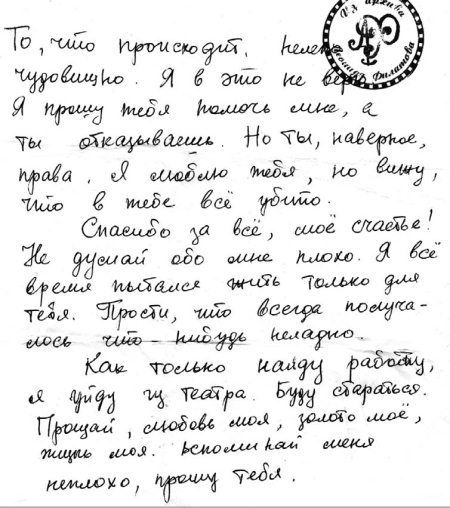 Из архива Леонида Филатова
То, что происходит, нелепо
чудовищно. Я в это не верю
Я прошу тебя помочь мне, а
ты отказываешь. Но ты, наверное,
права. Я люблю тебя, но вижу,
что в тебе всё убито.
Спасибо за всё, моё счастье!
Не думай обо мне плохо. Я всё
время пытался жить только для
тебя. Прости, что всегда получа-
лось что-нибудь неладно.
Как только найду работу,
я уйду из театра. Буду стараться.
Прощай, любовь моя, золото моё,
жизнь моя. Вспоминай меня
неплохо, прошу тебя.